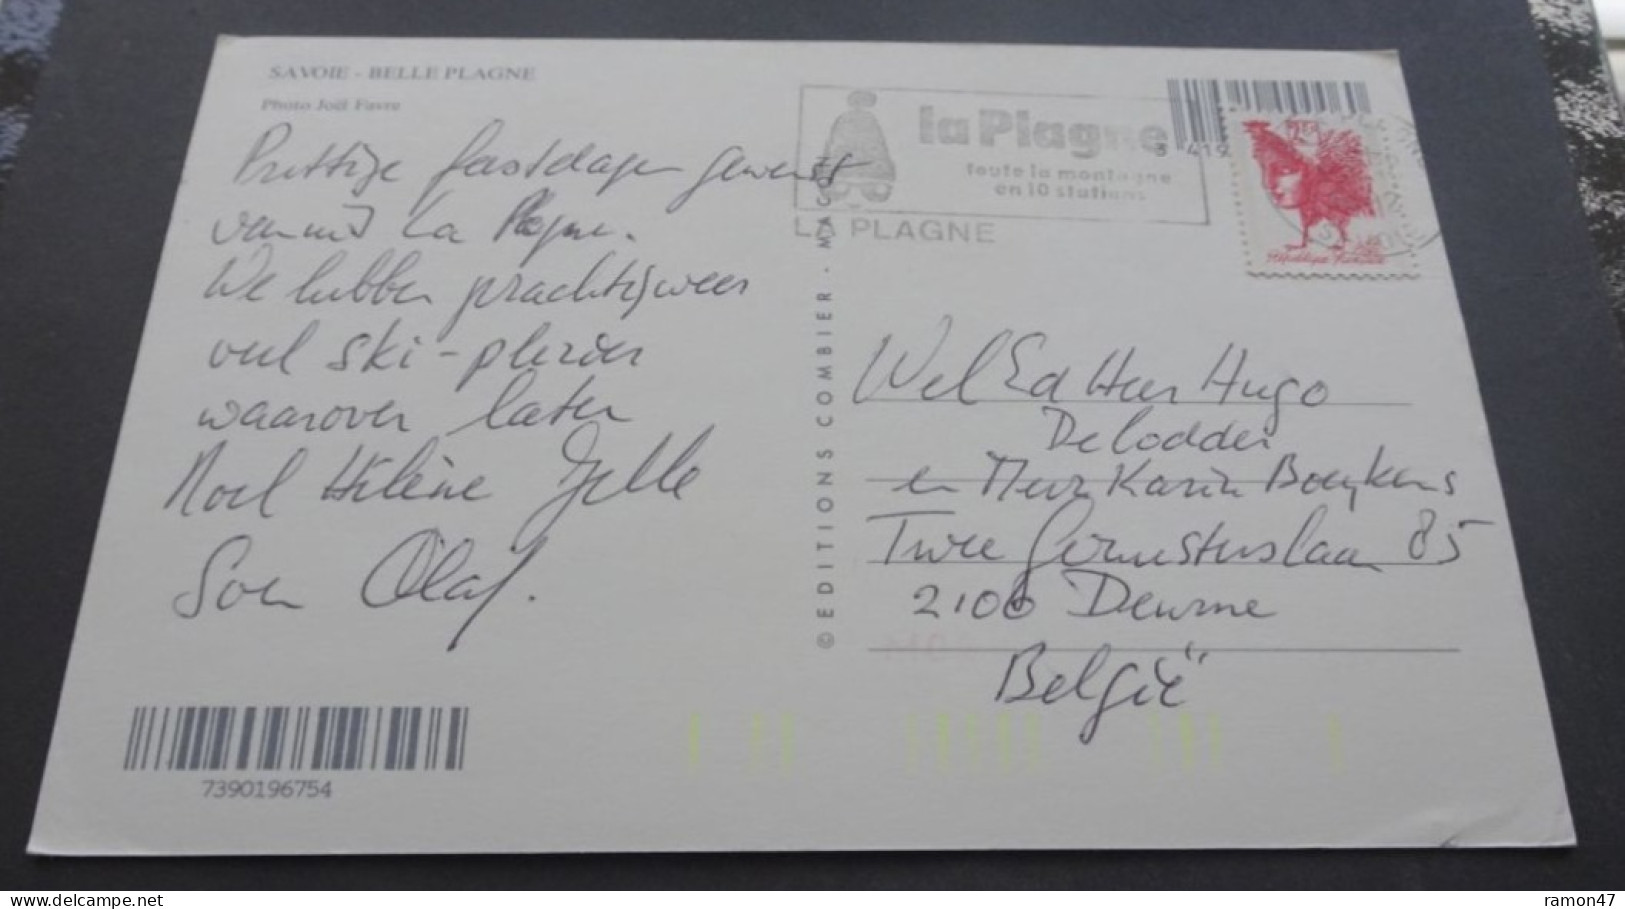 SAVOIE - BELLE PLAGNE
Photo Joël Favre
Prettige feestdagen gewenst
vanuit La Plagne.
We hebben prachtig weer
veel ski-plezier
waarover later
Noel Hélène Jelle
Son Olaf.
7390196754
© EDITIONS COMBIER - MAC
la Plagne
toute la montagne
en 10 stations
LA PLAGNE
3 419
République Française
Wel Ed Heer Hugo
Delodder
en Mevr Karin Boeykens
Twee Gemeetenslaan 85
2100 Deurne
België
ramon47